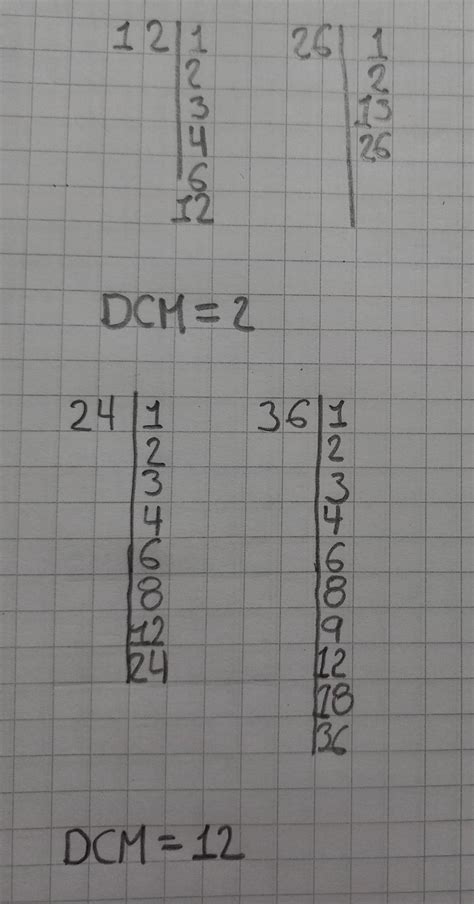 12 1 26 1
2 2
3 13
4 26
6
12
DCM = 2
24 1 36 1
2 2
3 3
4 4
6 6
8 8
12 9
24 12
18
36
DCM = 12